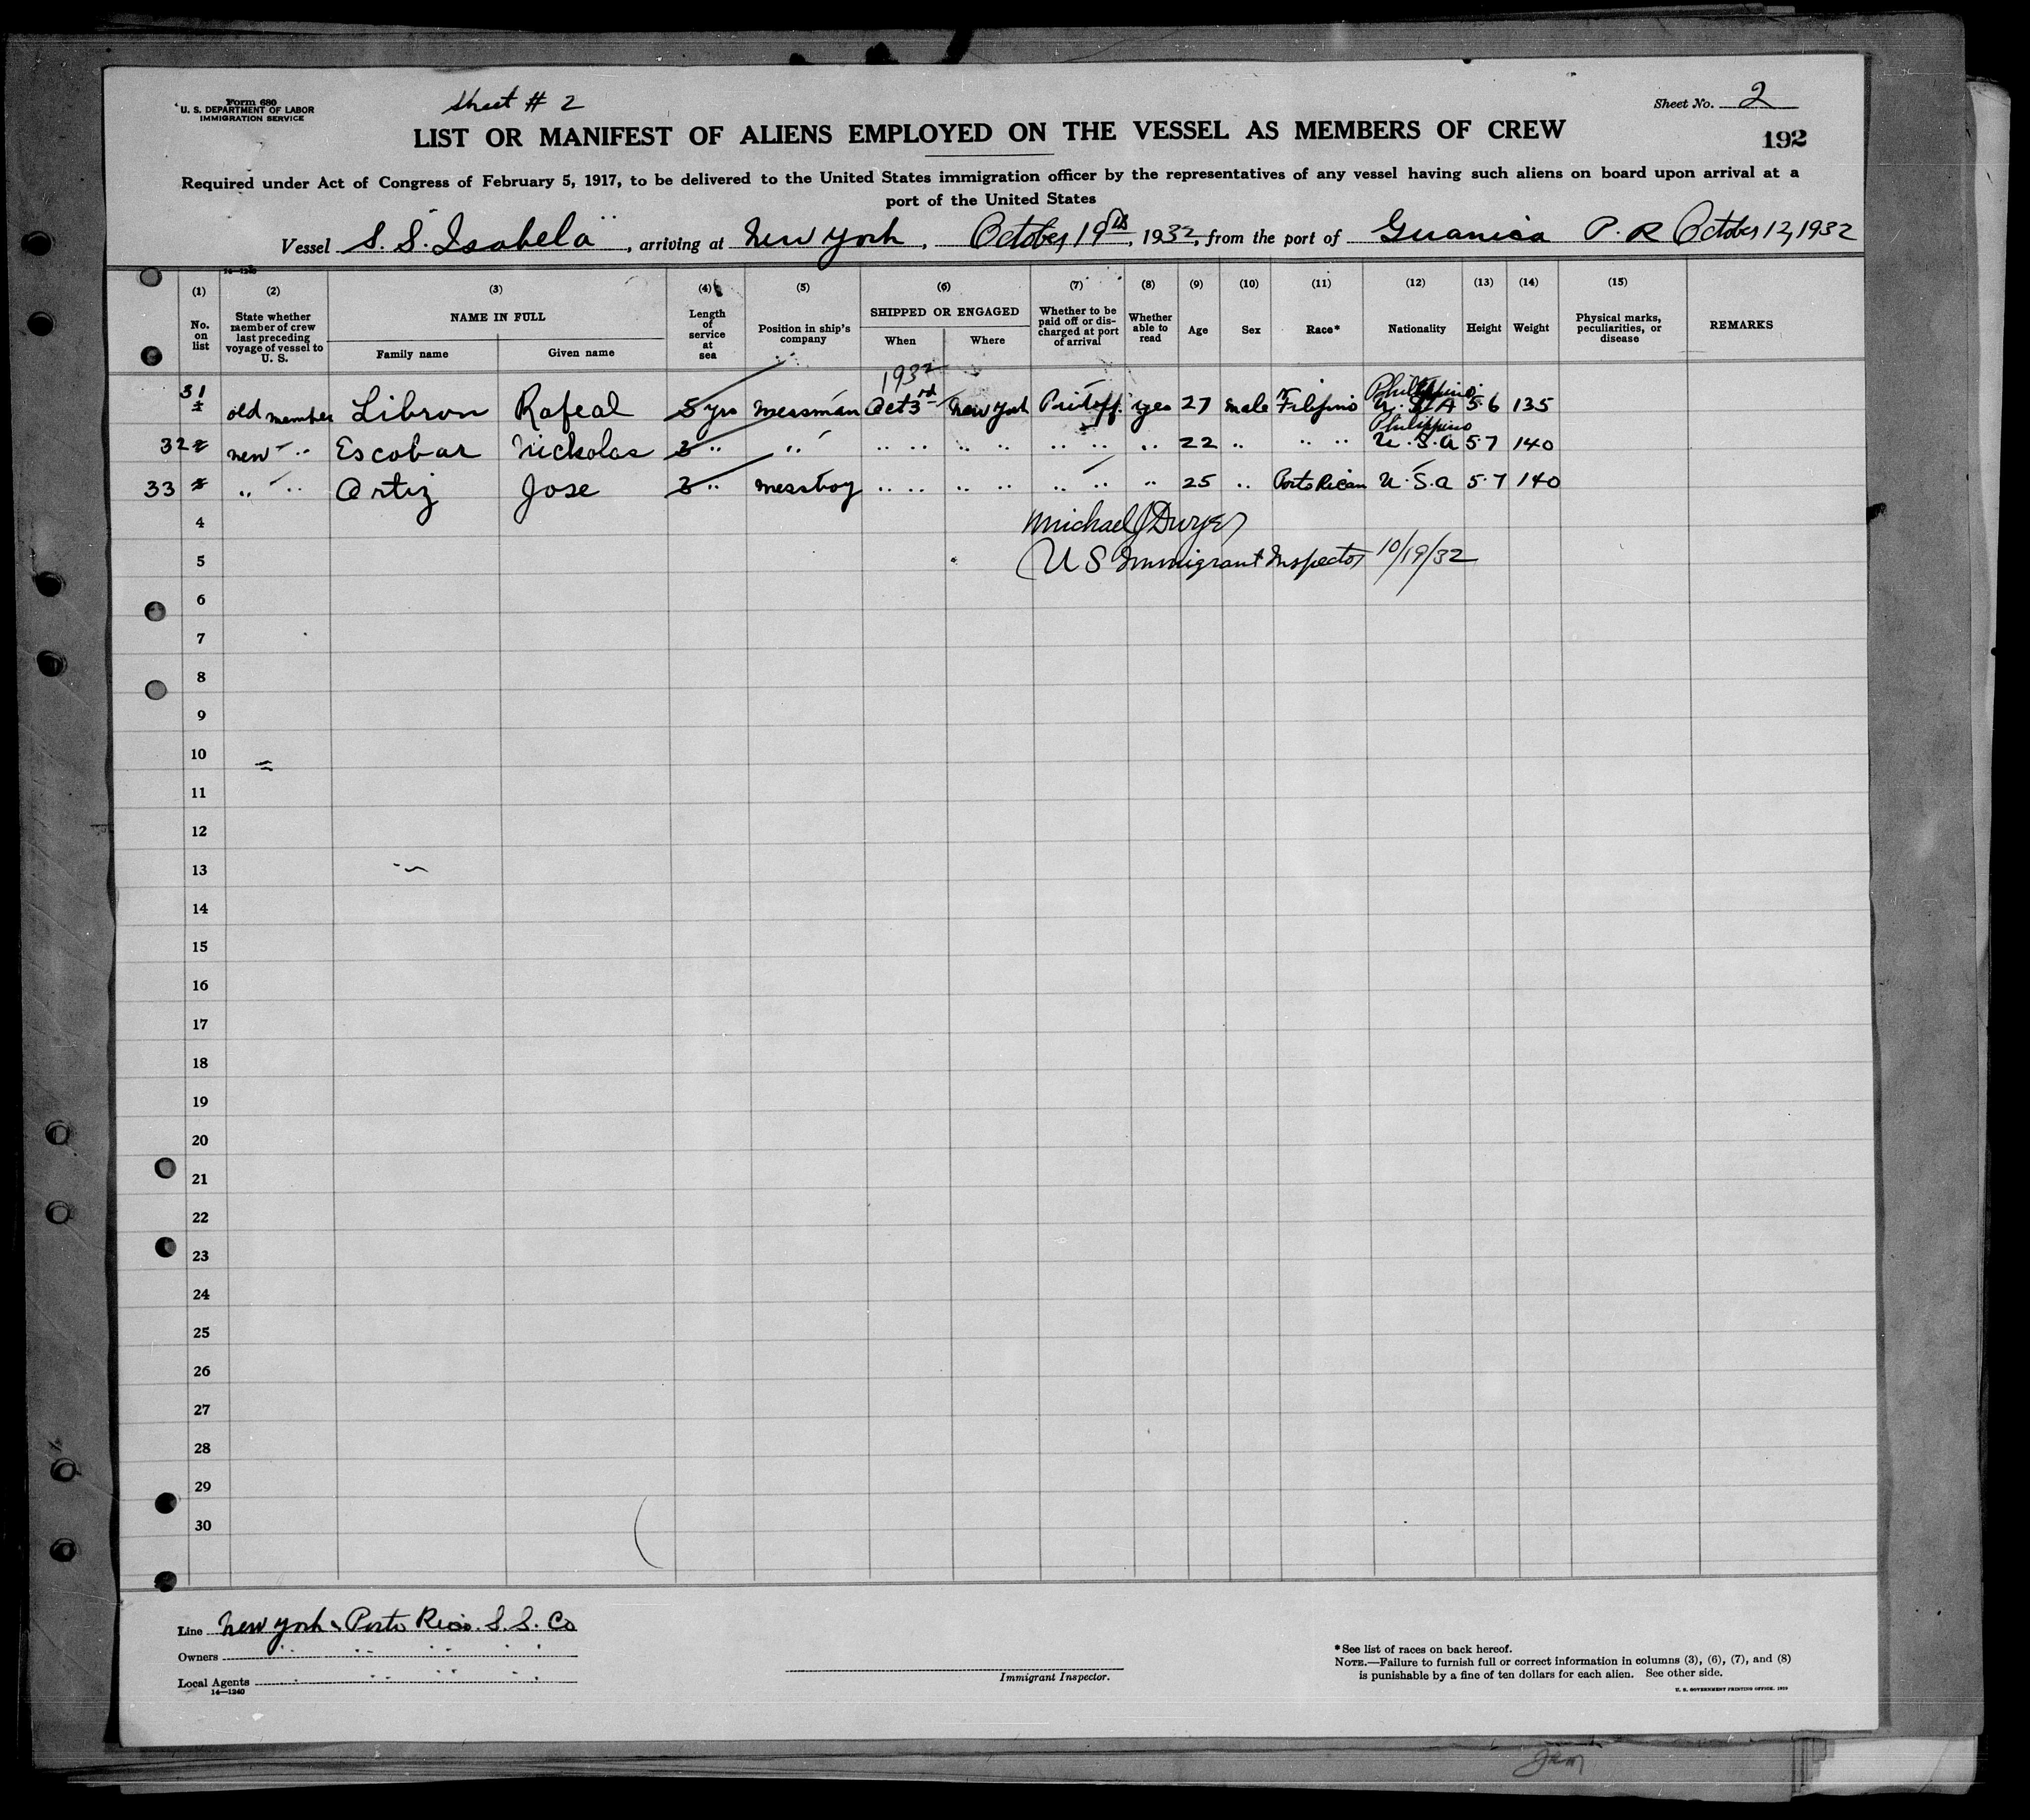 Form 680
U. S. DEPARTMENT OF LABOR
IMMIGRATION SERVICE
Sheet # 2
Sheet No. 2
LIST OR MANIFEST OF ALIENS EMPLOYED ON THE VESSEL AS MEMBERS OF CREW
192
Required under Act of Congress of February 5, 1917, to be delivered to the United States immigration officer by the representatives of any vessel having such aliens on board upon arrival at a
port of the United States
Vessel S. S. Isabela, arriving at New York, October 19th, 1932, from the port of Guanica P. R October 12, 1932
14—1240
(1) (2) (3) (4) (5) (6) (7) (8) (9) (10) (11) (12) (13) (14) (15)
No. on list
State whether member of crew last preceding voyage of vessel to U. S.
NAME IN FULL
Family name
Given name
Length of service at sea
Position in ship's company
SHIPPED OR ENGAGED
When
Where
Whether to be paid off or discharged at port of arrival
Whether able to read
Age
Sex
Race*
Nationality
Height
Weight
Physical marks, peculiarities, or disease
REMARKS
1932
Philippino
31 1 old member Libron Rafeal 5 yrs messman Oct 3rd New York yes 27 male Filipino U. S. A 5.6 135
Philippino
32 2 new " Escobar Nickolas 3 " " " " " " " " " 22 " " " U. S. a 5.7 140
33 3 " " Ortiz Jose 3 " messboy " " " " " " " 25 " Porto Rican U. S. a 5.7 140
4 Michael J Dwyer
5 US Immigrant Inspector 10/19/32
6
7
8
9
10
11
12
13
14
15
16
17
18
19
20
21
22
23
24
25
26
27
28
29
30
Line New York & Porto Rico S. S. Co
Owners " " " " "
Local Agents " " " " "
14—1240
Immigrant Inspector.
*See list of races on back hereof.
NOTE.—Failure to furnish full or correct information in columns (3), (6), (7), and (8)
is punishable by a fine of ten dollars for each alien. See other side.
U. S. GOVERNMENT PRINTING OFFICE. 1929